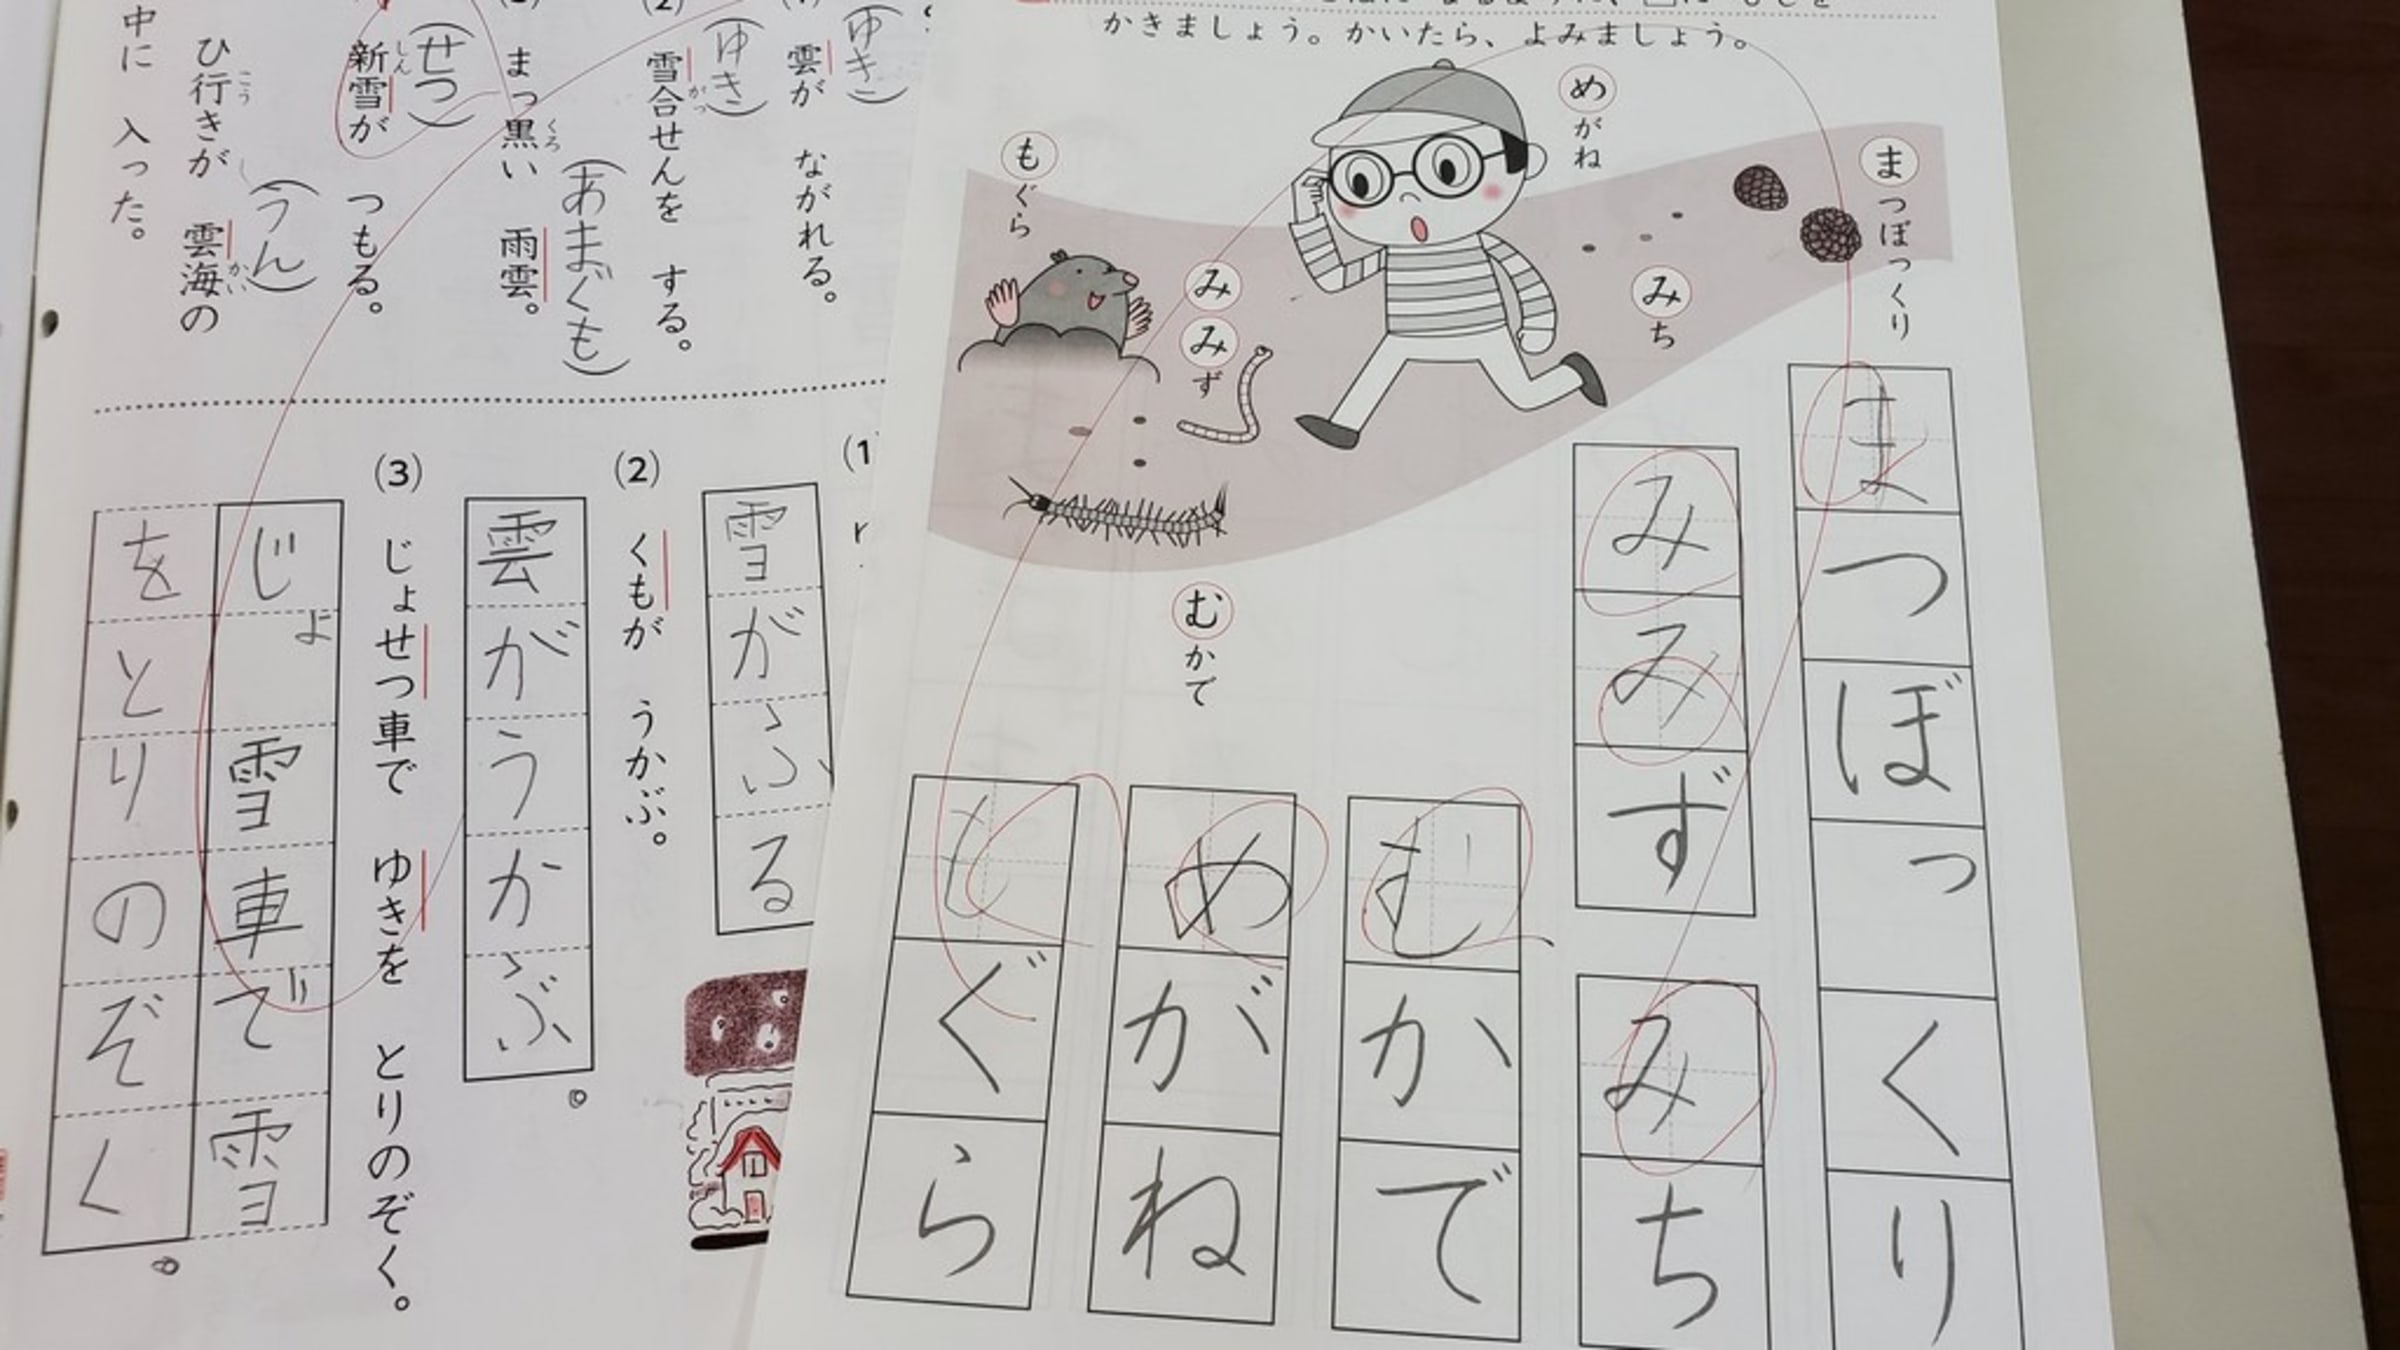 かきましょう。かいたら、よみましょう。
まつぼっくり
めがね
みち
みみず
もぐら
むかで
まつぼっくり
みみず
みち
むかで
めがね
もぐら
雲が ながれる。
(ゆき)
雪合せんを する。
がっ
(ゆき)
まっ黒い 雨雲。
くろ
(あまぐも)
新雪が つもる。
しん
(せつ)
ひ行きが 雲海の
こう
かい
(うん)
中に 入った。
(1)
雪がふる
(2) くもが うかぶ。
雲がうかぶ。
(3) じょせつ車で ゆきを とりのぞく。
じょ雪車で雪
をとりのぞく。